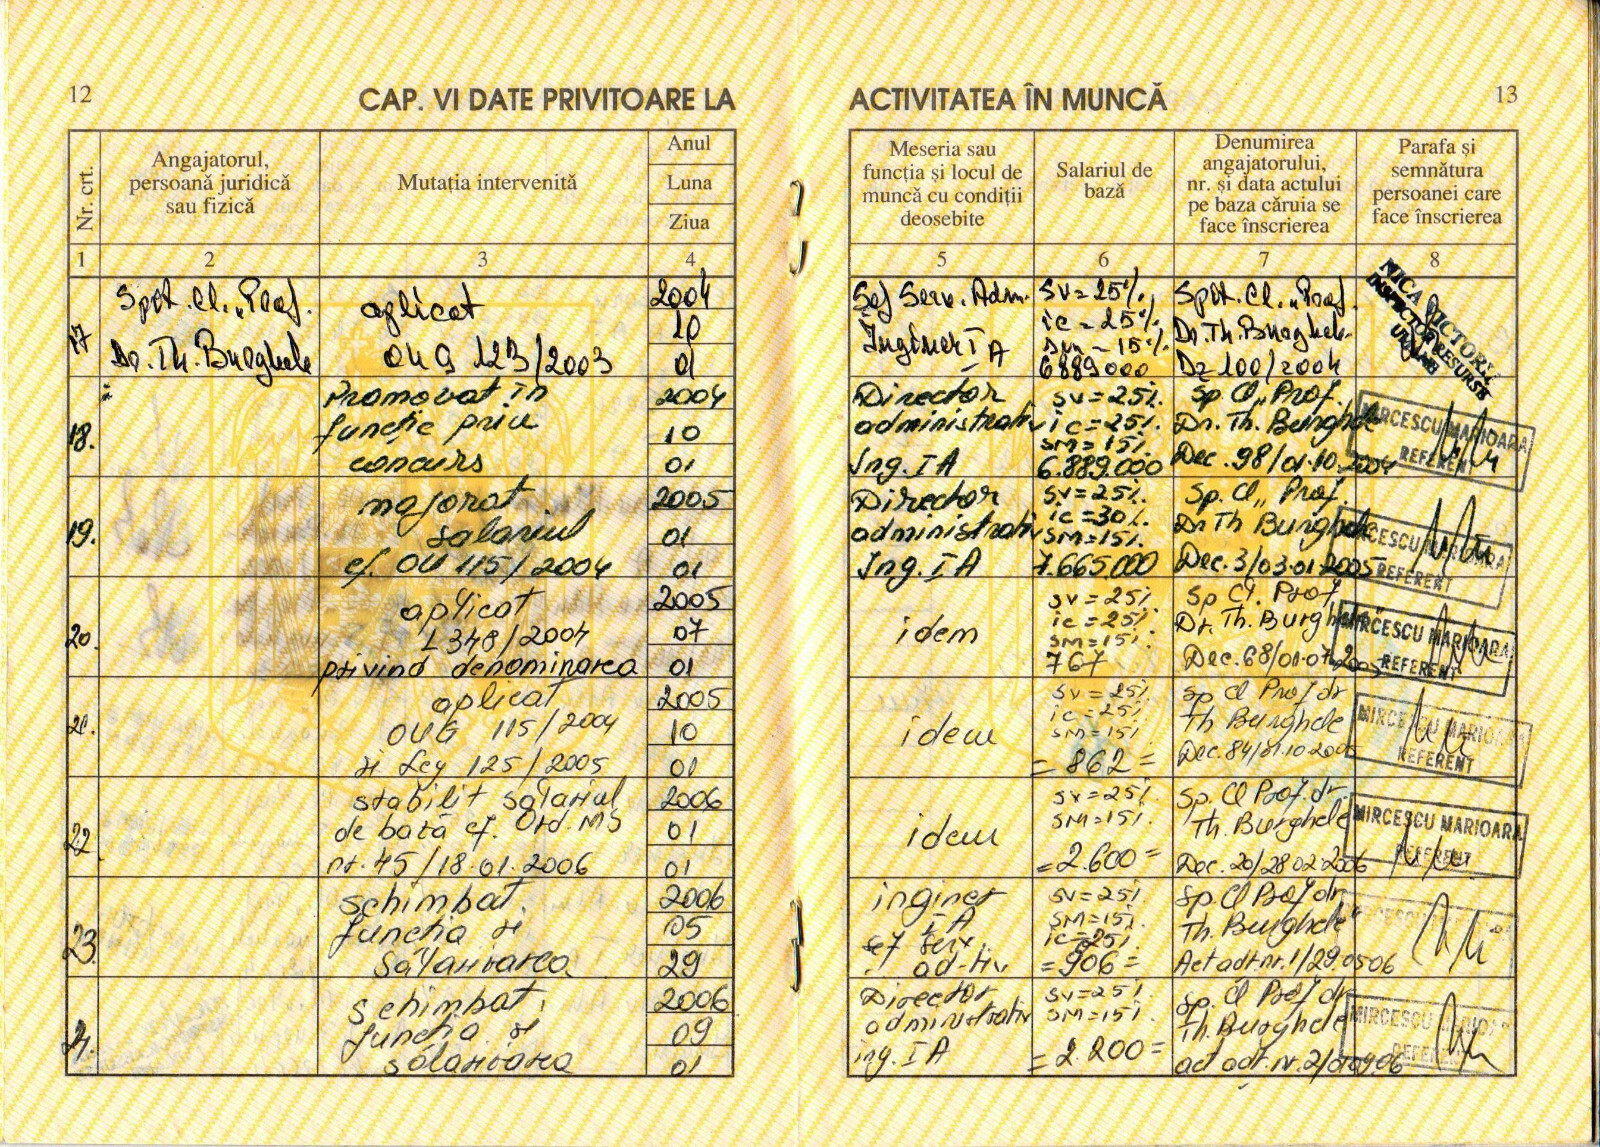 12
CAP. VI DATE PRIVITOARE LA
Nr. crt.
Angajatorul,
persoană juridică
sau fizică
Mutația intervenită
Anul
Luna
Ziua
1
2
3
4
17
Spit. Cl. „Prof.
Dr. Th. Burghele
aplicat
OUG 123/2003
2004
10
01
18.
Promovat în
funcție prin
concurs
2004
10
01
19.
majorat
salariul
cf. OU 115/2004
2005
01
01
20
aplicat
L 348/2004
privind denominarea
2005
07
01
21.
aplicat
OUG 115/2004
și Leg 125/2005
2005
10
01
22
stabilit salariul
de bază cf. Ord. MS
nr. 45/18.01.2006
2006
01
01
23
schimbat
funcția și
salarizarea
2006
05
29
24.
schimbat
funcția și
salarizarea
2006
09
01
ACTIVITATEA ÎN MUNCĂ
13
Meseria sau
funcția și locul de
muncă cu condiții
deosebite
Salariul de
bază
Denumirea
angajatorului,
nr. și data actului
pe baza căruia se
face înscrierea
Parafa și
semnătura
persoanei care
face înscrierea
5
6
7
8
Șef Serv. Adm.
Inginer I A
SV = 25%
ic = 25%
15%
6889000
Spit. Cl. „Prof.
Dr. Th. Burghele
Dz 100/2004
INSPECTOR RESURSE
UMANE
Director
administrativ
Ing. I A
SV = 25%
ic = 25%
SM = 15%
6.889.000
Sp. Cl „Prof.
Dr. Th. Burghele
Dec. 98/01.10.2004
MIRCESCU MARIOARA
REFERENT
Director
administrativ
Ing. I A
SV = 25%
ic = 30%
SM = 15%
7.665.000
Sp. Cl „Prof.
Dr Th Burghele
Dec. 3/03.01.2005
MIRCESCU MARIOARA
REFERENT
idem
SV = 25%
ic = 25%
SM = 15%
767
Sp Cl. Prof
Dr. Th. Burghele
Dec. 68/01.07.2005
MIRCESCU MARIOARA
REFERENT
idem
SV = 25%
ic = 25%
SM = 15%
= 862 =
Sp Cl Prof dr
Th Burghele
Dec. 84/01.10 2005
MIRCESCU MARIOARA
REFERENT
idem
SV = 25%
SM = 15%
= 2.600 =
Sp. Cl Prof. dr
Th. Burghele
Dec. 20/28 02 2006
MIRCESCU MARIOARA
REFERENT
inginer
I A
șef serv
ad-tiv
SV = 25%
SM = 15%
ic = 25%
= 906 =
Sp Cl Prof dr
Th. Burghele"
Act adt. nr. 1/29.05 06
MIRCESCU MARIOARA
Director
administrativ
ing. I A
SV = 25%
SM = 15%
= 2.200 =
Sp. Cl Prof dr
Th. Burghele
act adt. nr. 2/01.09.06
MIRCESCU MARIOARA
REFERENT